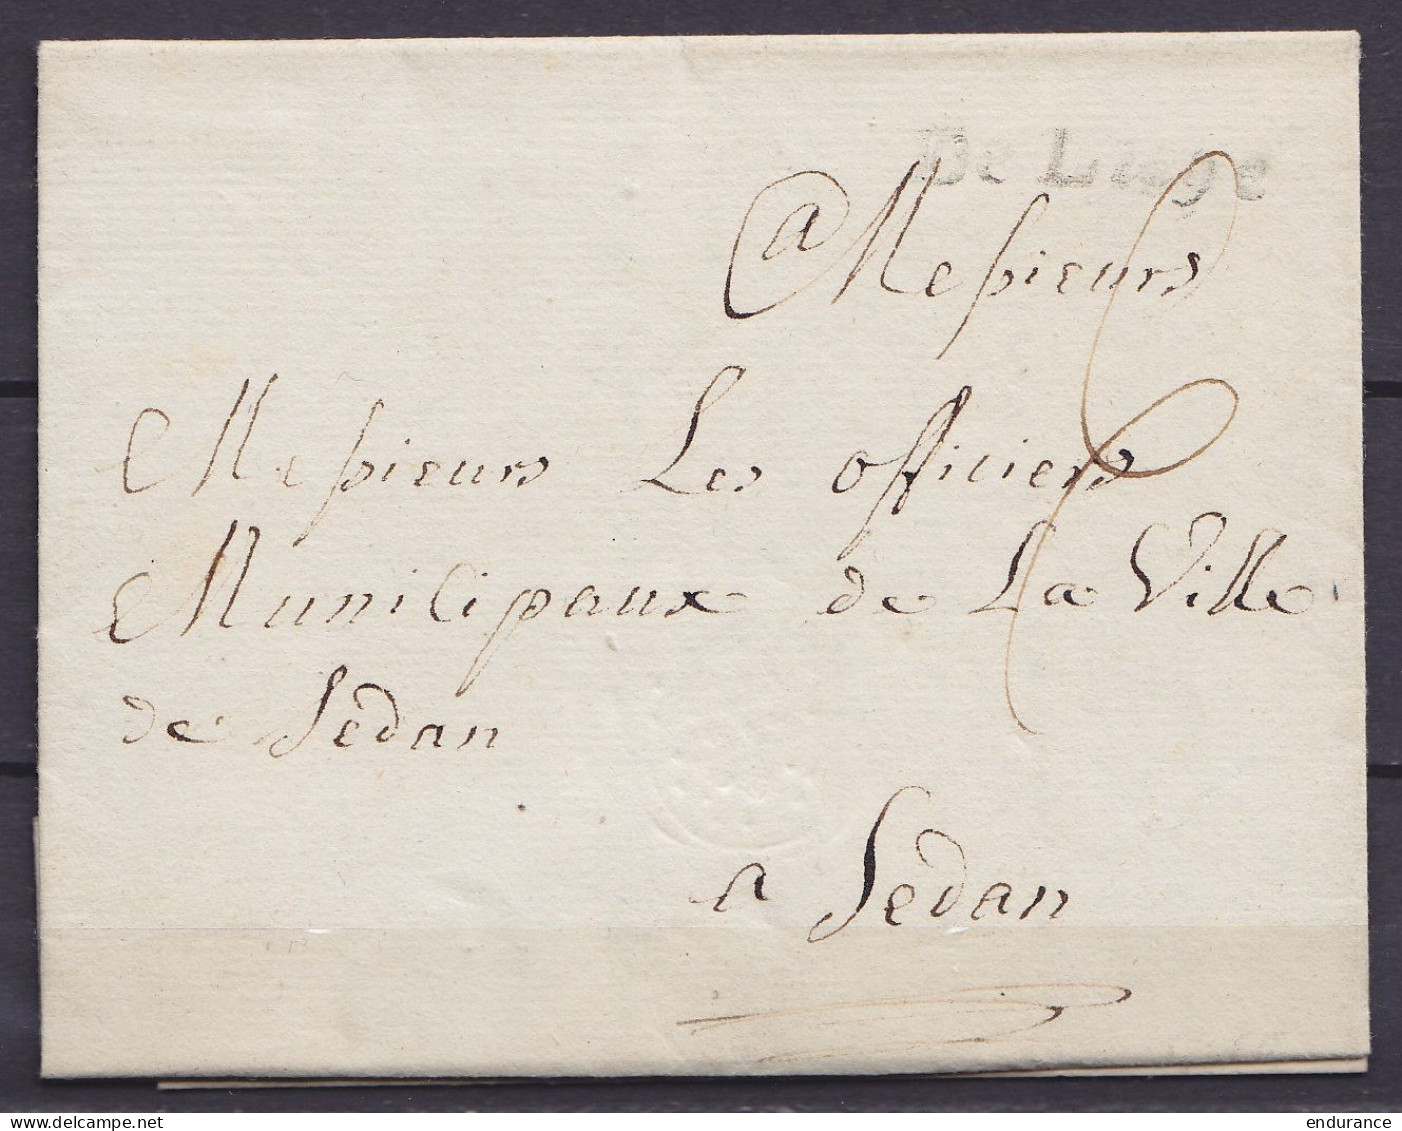 De Liege
a Messieurs
Messieurs Les officiers
Municipaux de La Ville
de Sedan
a Sedan
delcampe.net
endurance